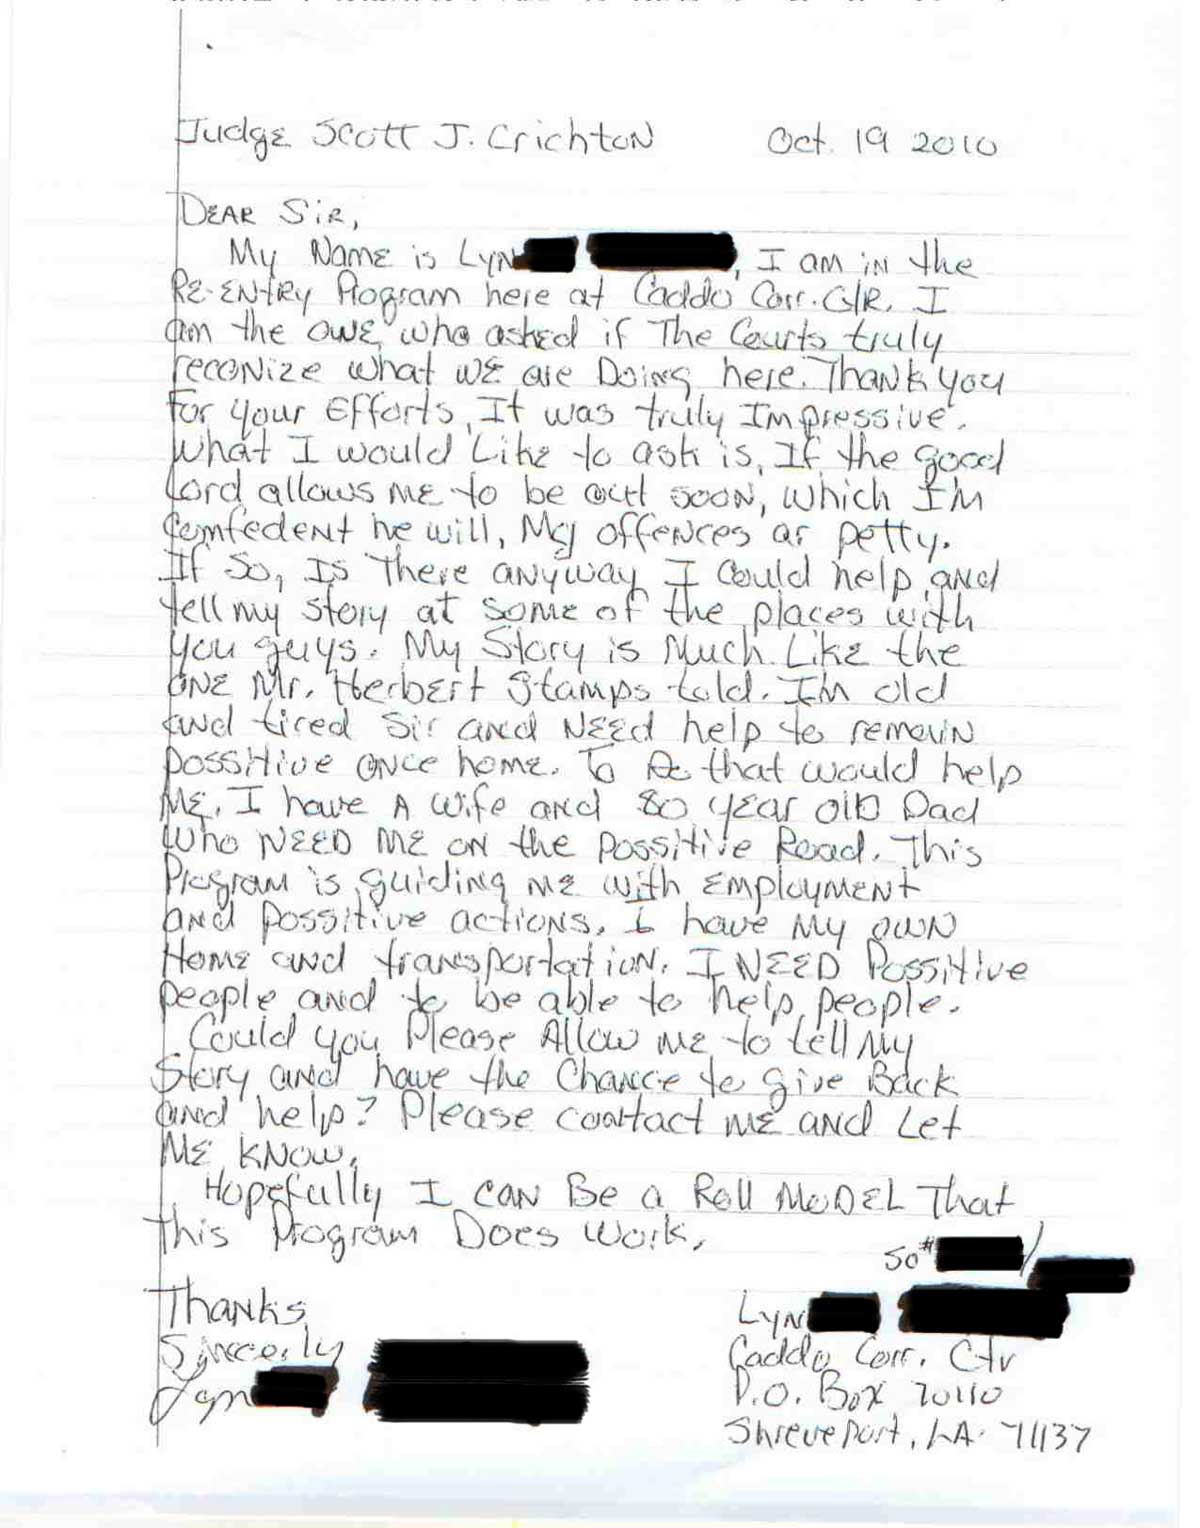 Judge Scott J. Crichton Oct. 19 2010
Dear Sir,
My Name is Lyn , I am in the
Re-Entry Program here at Caddo Corr. Ctr. I
am the one, who asked if The Courts truly
reconize what we are Doing here. Thank you
for your Efforts, It was truly Impressive.
What I would Like to ask is, If the good
Lord allows me to be out soon, which I'm
Comfedent he will, My offences ar petty.
If So, Is There anyway I could help and
tell my story at some of the places with
you guys. My Story is Much Like the
one Mr. Herbert Stamps told. I'm old
and tired Sir and Need help to remain
possitive once home. To Do that would help
Me. I have A wife and 80 year old Dad
who NEED ME on the possitive Road. This
Program is guiding me with Employment
and possitive actions. I have My own
Home and transportation. I NEED Possitive
people and to be able to help people.
Could you Please Allow me to tell My
Story and have the Chance to give Back
and help? Please contact me and Let
Me know.
Hopefully I can Be a Roll Model That
this Program Does Work.
SO# /
Thanks
Lyn
Sincerly
Caddo Corr. Ctr
Lyn
P.O. Box 70110
Shreveport, LA. 71137